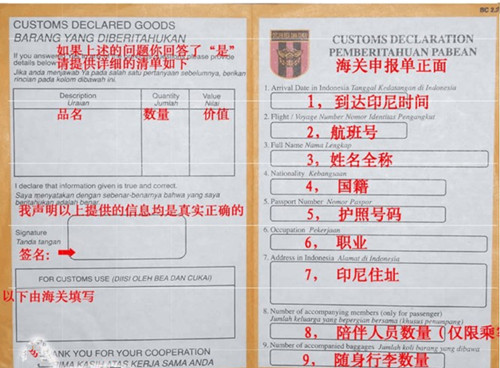 BC 2.2
CUSTOMS DECLARED GOODS
BARANG YANG DIBERITAHUKAN
如果上述的问题你回答了“是”
If you answered
please provide
请提供详细的清单如下
details below
Jika anda menjawab Ya pada salah satu pertanyaan sebelumnya, berikan
rincian pada kolom dibawah ini.
Description
Quantity
Value
Uraian
Jumlah
Nilai
品名
数量
价值
I declare that information given is true and correct.
Saya menyatakan dengan sebenar-benarnya bahwa yang saya
beritahukan adalah benar
我声明以上提供的信息均是真实正确的
Signature
Tanda tangan
签名：
FOR CUSTOMS USE (DIISI OLEH BEA DAN CUKAI)
以下由海关填写
THANK YOU FOR YOUR COOPERATION
TERIMA KASIH ATAS KERJA SAMA ANDA
CUSTOMS DECLARATION
PEMBERITAHUAN PABEAN
海关申报单正面
1. Arrival Date in Indonesia Tanggal Kedatangan di Indonesia
1，到达印尼时间
2. Flight / Voyage Number Nomor Identitas Pengangkut
2，航班号
3. Full Name Nama Lengkap
3，姓名全称
4. Nationality Kebangsaan
4，国籍
5. Passport Number Nomor Paspor
5，护照号码
6. Occupation Pekerjaan
6，职业
7. Address in Indonesia Alamat di Indonesia
7，印尼住址
8. Number of accompanying members (only for passenger)
Jumlah keluarga yang bepergian bersama (khusus penumpang)
8，陪伴人员数量（仅限乘客
9. Number of accompanied baggages Jumlah koli barang yang dibawa
9，随身行李数量